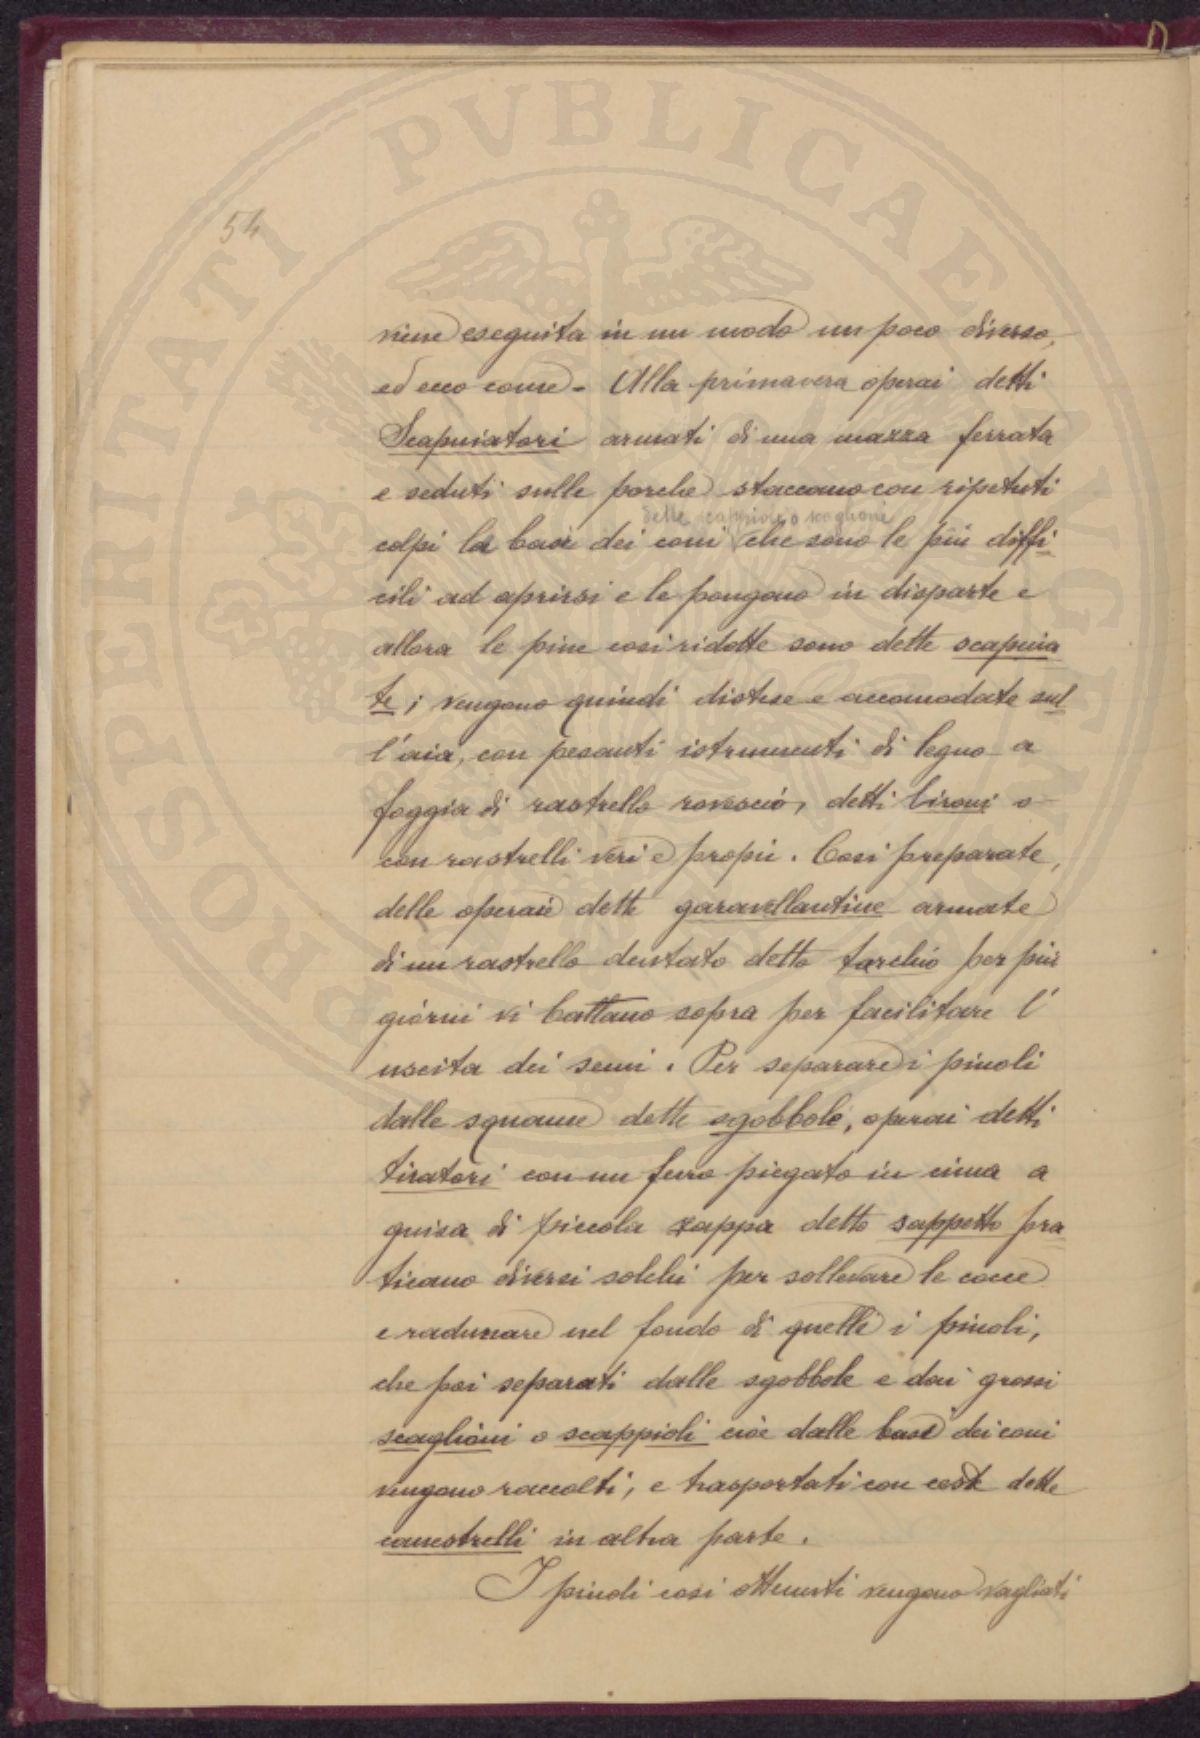 54
viene eseguita in un modo un poco diverso,
ed ecco come. Alla primavera operai detti
Scapuiatori armati di una mazza ferrata
e seduti sulle porche staccano con ripetuti
dette scappioli o scaglioni
colpi la base dei coni che sono le più diffi-
cili ad aprirsi e le pongono in disparte e
allora le pine così ridotte sono dette scapuia
te; vengono quindi distese e accomodate sul
l'aia, con pesanti istrumenti di legno a
foggia di rastrello rovescio, detti bironi o
con rastrelli veri e propii. Così preparate,
delle operaie dette garavellantine armate
di un rastrello dentato detto farchio per più
giorni vi battano sopra per facilitare l'
uscita dei semi. Per separare i pinoli
dalle squame dette sgobbole, operai detti
tiratori con un ferro piegato in cima a
guisa di piccola zappa detto sappetto pra
ticano diversi solchi per sollevare le cocce
e radunare nel fondo di quelli i pinoli,
che poi separati dalle sgobbole e dai grossi
scaglioni o scappioli cioè dalle basi dei coni
vengono raccolti, e trasportati con ceste dette
canestrelli in altra parte.
I pinoli così ottenuti vengono vagliati
PROSPERITATI PVBLICAE AVGENDAE